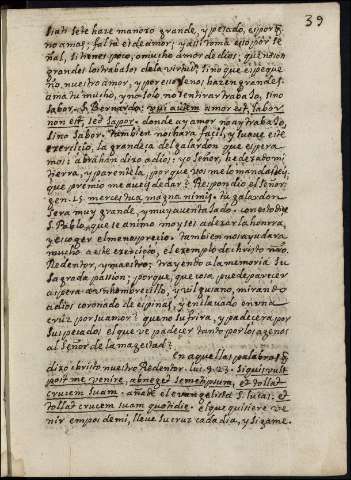 39
si así se te haze manojo grande, y pesado, es por q̃
no amas; falta el de amor; y así toma esto por se
ñal, si tienes poco, o mucho amor de dios; que no son
grandes los trabajos de la virtud; sino que es peque
ño nuestro amor, y por eso se nos hazen grandes.
ama tu mucho, y no solo no sentiras trabajo, sino
sabor. S. Bernardo: vui autem amor est, labor
non est, sed sapor. donde ay amor no ay trabajo,
sino sabor. Tambien nos hara facil, y suaue este
exercicio, la grandeza del galardon que espera
mos: abrahan dixo a dios; yo Señor, he dexado mi
tierra, y parentela, porque vos me lo mandasteis;
que premio me aueis de dar? Respondio el Señor:
gen. 15 merces tua, magna nimis. tu galardon
sera muy grande, y muy auentajado. con esto dize
S. Pablo, que se animo moyses a dexar la honrra,
y escoger el menosprecio. tambien nos ayudara
mucho a este exercicio, el exemplo de christo nr̃o
Redentor, y maestro; trayendo a la memoria su
Sagrada passion; porque, que cosa puede parecer
aspera a vn hombrecillo, y vil gusano, mirando
a dios coronado de espinas, y enclauado en vna
cruz por su amor? que no sufrira, y padecera por
sus pecados el que ve padecer tanto por los agenos
al Señor de la magestad?
En aquellas palabras q̃
dixo christo nuestro Redentor. luc. 9. 23. Si quis vult
post me venire, abneget semetipsum, et tollat
crucem suam. añade el euangelista S. lucas: et
tollat crucem suam quotidie. el que quisiere ve
nir empos de mi, lleue su cruz cada dia, y sigame.